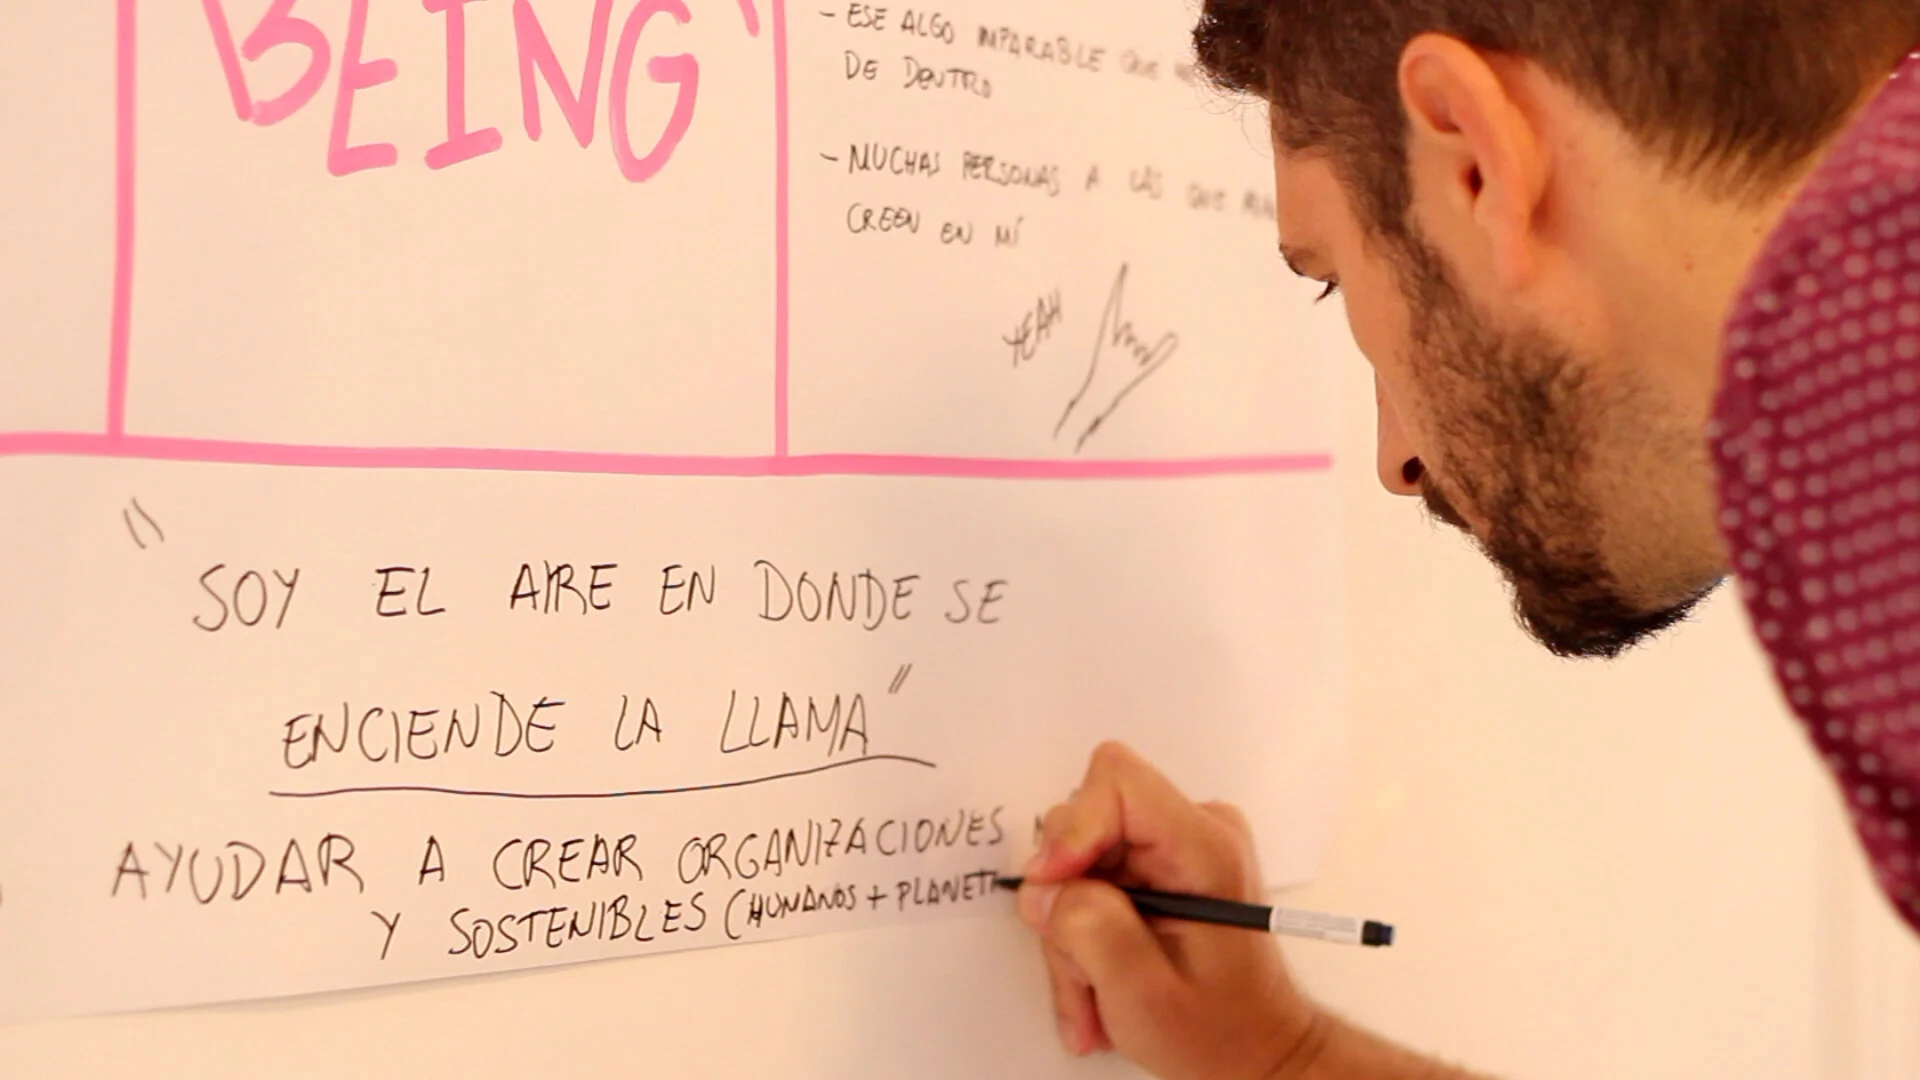 BEING
- ESE ALGO IMPARABLE QUE
DE DENTRO
- MUCHAS PERSONAS A LAS QUE
CREEN EN MÍ
YEAH
"SOY EL AIRE EN DONDE SE
ENCIENDE LA LLAMA"
AYUDAR A CREAR ORGANIZACIONES
Y SOSTENIBLES (HUMANOS + PLANETA